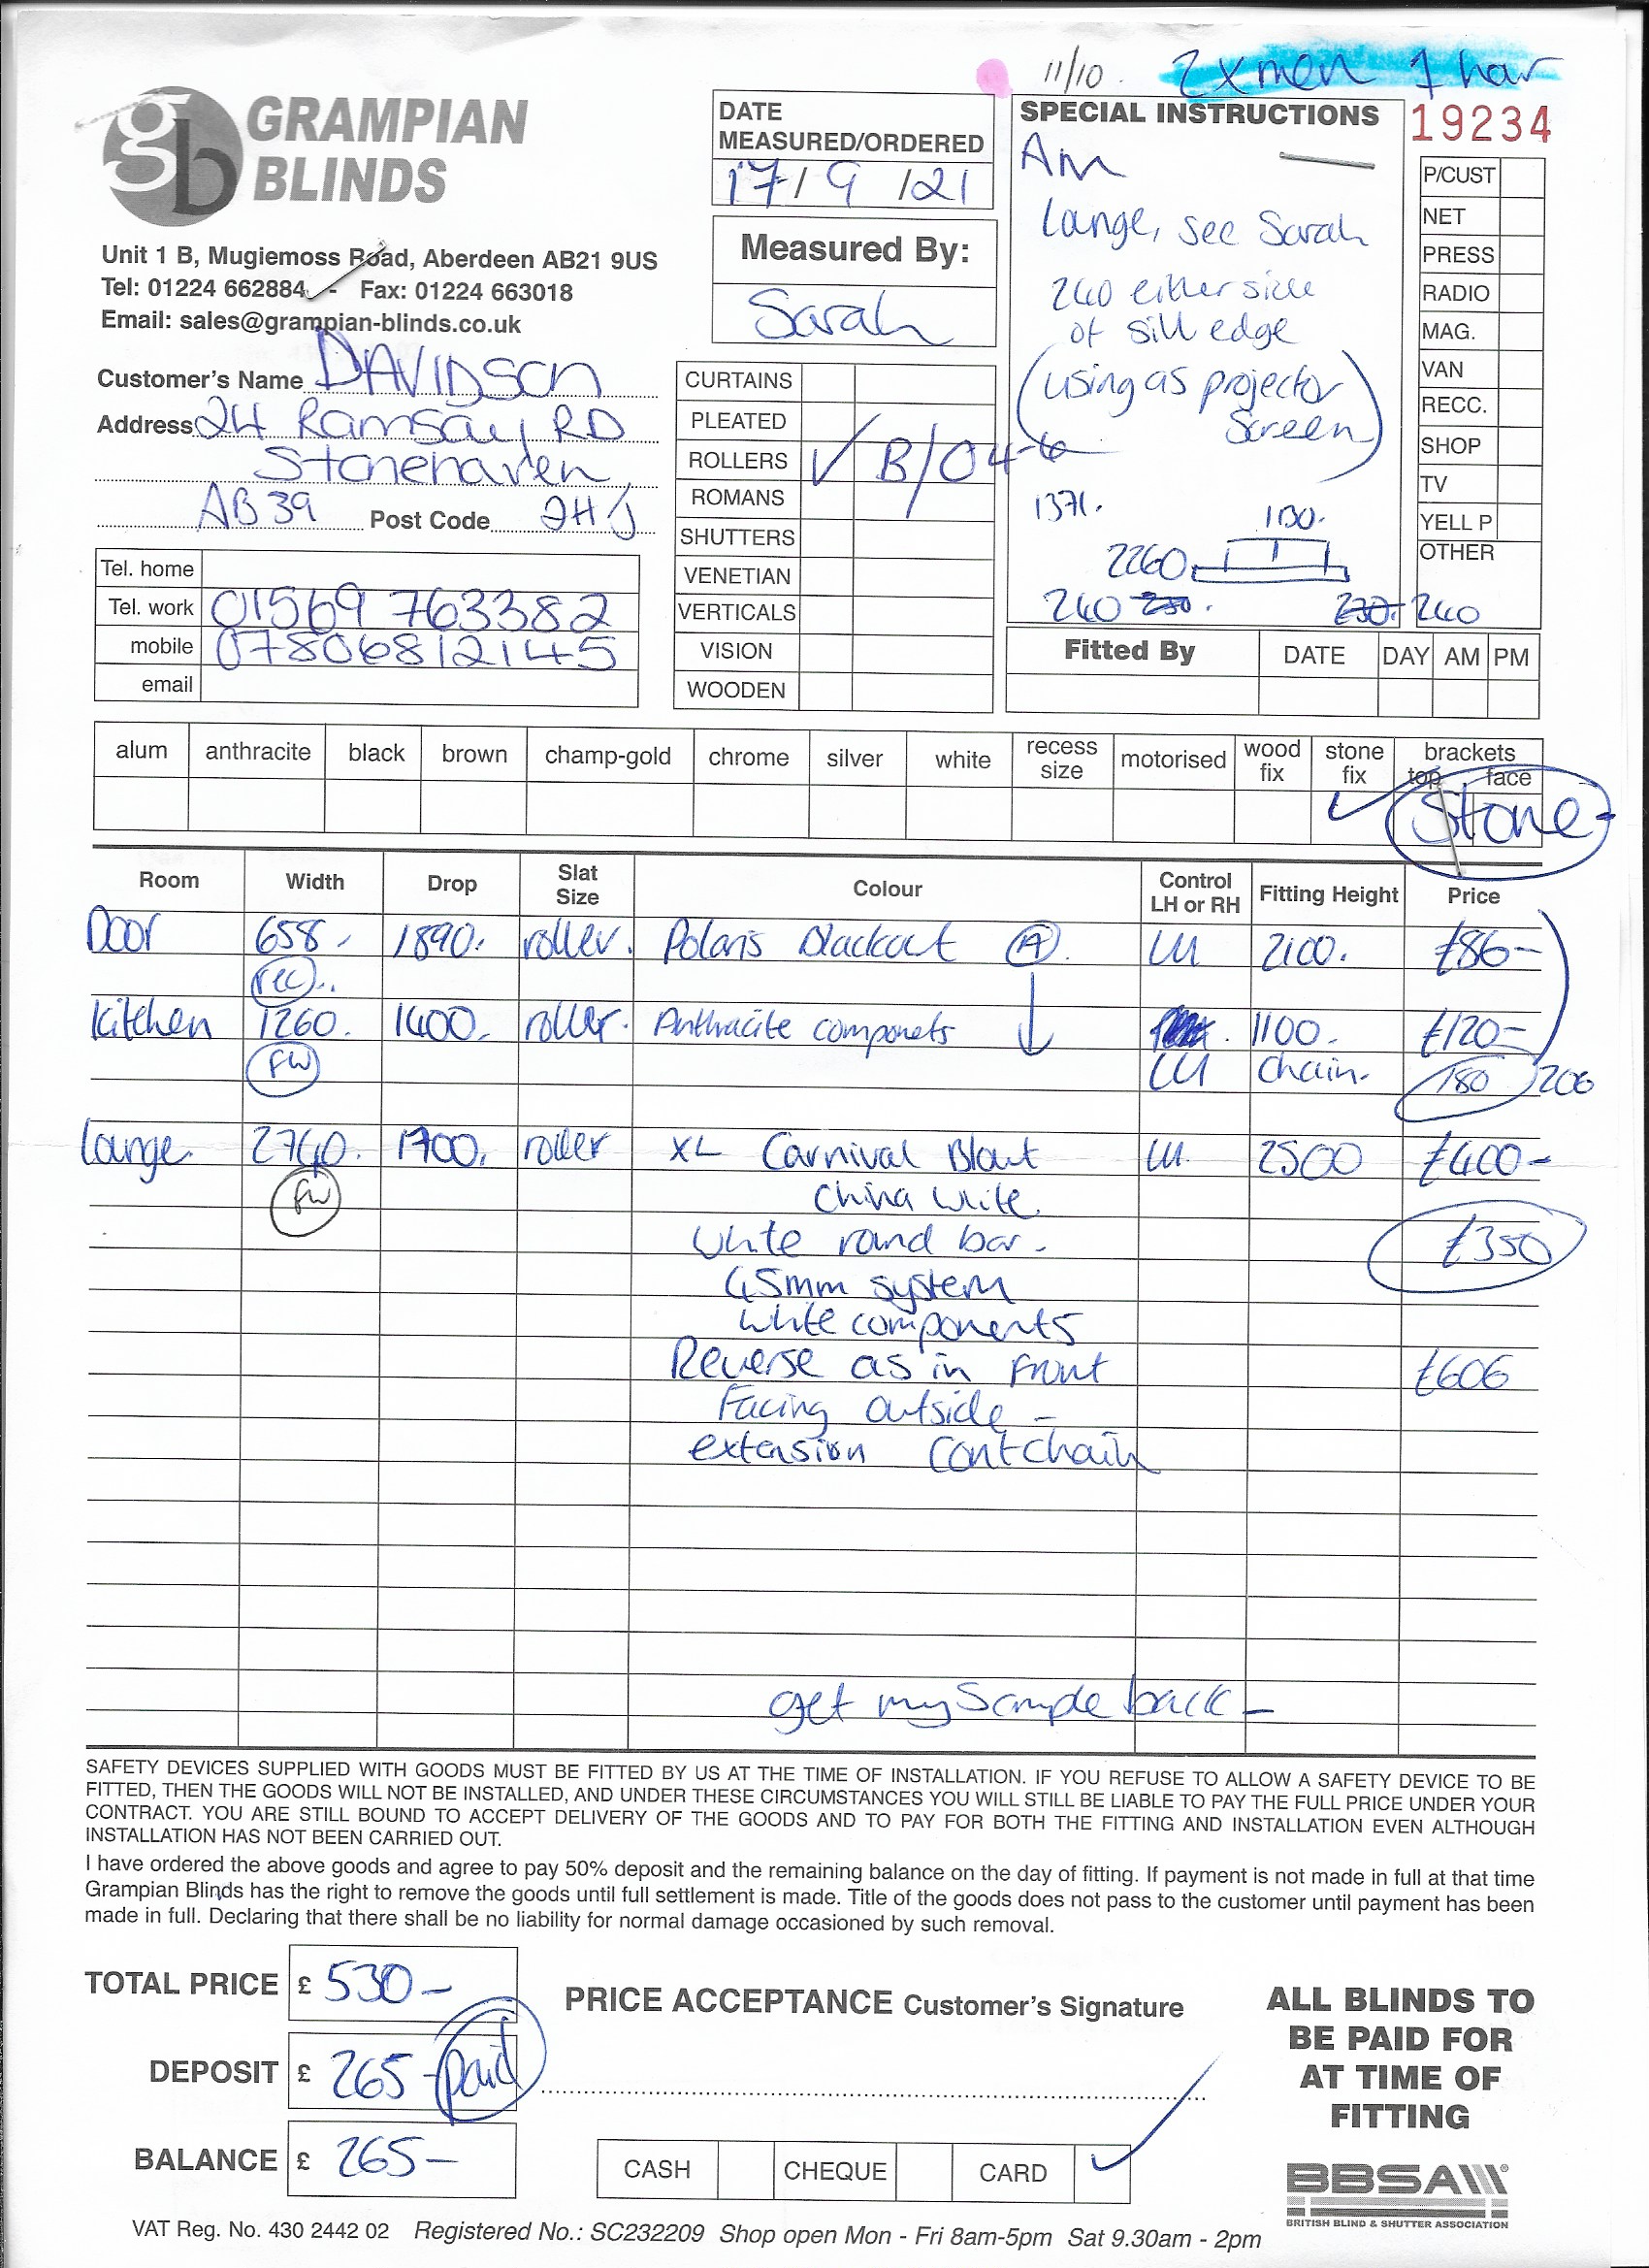 11/10. 2 x men 1 hour
GRAMPIAN
BLINDS
Unit 1 B, Mugiemoss Road, Aberdeen AB21 9US
Tel: 01224 662884 - Fax: 01224 663018
Email: sales@grampian-blinds.co.uk
Customer's Name DAVIDSON
Address 24 Ramsay RD
Stonehaven
AB39 Post Code 2HJ
Tel. home
Tel. work 01569 763382
mobile 07806812145
email
DATE
MEASURED/ORDERED
17/9/21
Measured By:
Sarah
CURTAINS
PLEATED
ROLLERS ✓ B/O 4-6
ROMANS
SHUTTERS
VENETIAN
VERTICALS
VISION
WOODEN
SPECIAL INSTRUCTIONS
Am
Lounge, see Sarah
240 either side
of sill edge
(using as projector
Screen)
1371. 1100.
2260
240 230. 230. 240
19234
P/CUST
NET
PRESS
RADIO
MAG.
VAN
RECC.
SHOP
TV
YELL P
OTHER
Fitted By DATE DAY AM PM
alum anthracite black brown champ-gold chrome silver white recess size motorised wood fix stone fix brackets top face
✓ Stone
Room Width Drop Slat Size Colour Control LH or RH Fitting Height Price
Door 658. 1890. roller. Polaris Blackout A LH 2100. £86-
rec
Kitchen 1260. 1400. roller. Anthracite componets 1100. £120-
FW LH Chain. 180 206
Lounge 2740. 1700. roller XL Carnival Blout LH. 2500 £400-
FW China White
White round bar. £350
45mm system
White components
Reverse as in Front £606
Facing outside -
extension cont chain
get my Sample back -
SAFETY DEVICES SUPPLIED WITH GOODS MUST BE FITTED BY US AT THE TIME OF INSTALLATION. IF YOU REFUSE TO ALLOW A SAFETY DEVICE TO BE
FITTED, THEN THE GOODS WILL NOT BE INSTALLED, AND UNDER THESE CIRCUMSTANCES YOU WILL STILL BE LIABLE TO PAY THE FULL PRICE UNDER YOUR
CONTRACT. YOU ARE STILL BOUND TO ACCEPT DELIVERY OF THE GOODS AND TO PAY FOR BOTH THE FITTING AND INSTALLATION EVEN ALTHOUGH
INSTALLATION HAS NOT BEEN CARRIED OUT.
I have ordered the above goods and agree to pay 50% deposit and the remaining balance on the day of fitting. If payment is not made in full at that time
Grampian Blinds has the right to remove the goods until full settlement is made. Title of the goods does not pass to the customer until payment has been
made in full. Declaring that there shall be no liability for normal damage occasioned by such removal.
TOTAL PRICE £ 530-
DEPOSIT £ 265- paid
BALANCE £ 265-
PRICE ACCEPTANCE Customer's Signature
CASH CHEQUE CARD ✓
ALL BLINDS TO
BE PAID FOR
AT TIME OF
FITTING
BBSA
BRITISH BLIND & SHUTTER ASSOCIATION
VAT Reg. No. 430 2442 02 Registered No.: SC232209 Shop open Mon - Fri 8am-5pm Sat 9.30am - 2pm